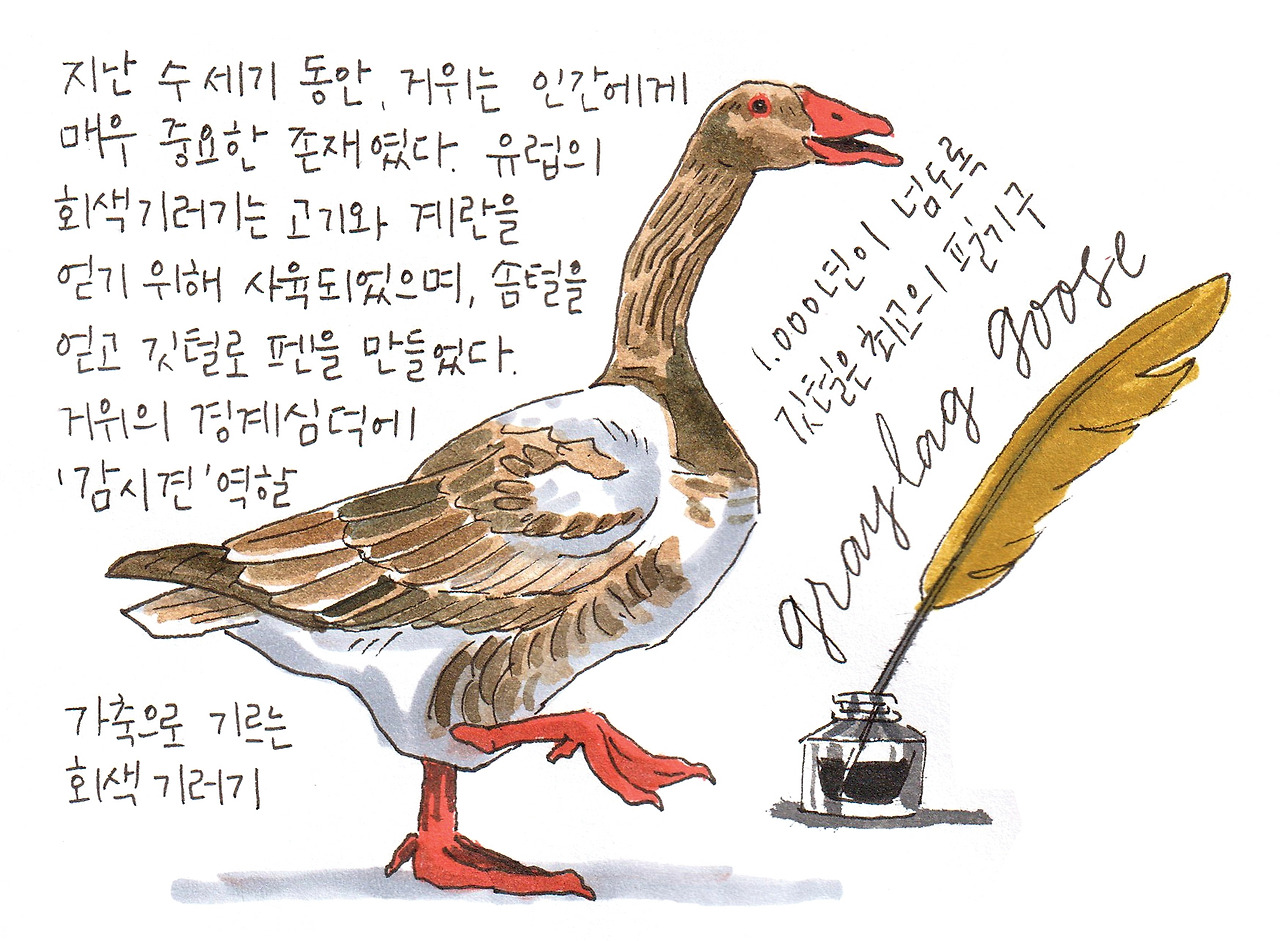 지난 수 세기 동안, 거위는 인간에게
매우 중요한 존재였다. 유럽의
회색기러기는 고기와 계란을
얻기 위해 사육되었으며, 솜털을
얻고 깃털로 펜을 만들었다.
거위의 경계심 덕에
'감시견' 역할
1.000년이 넘도록
깃털은 최고의 필기구
graylag goose
가축으로 기르는
회색기러기